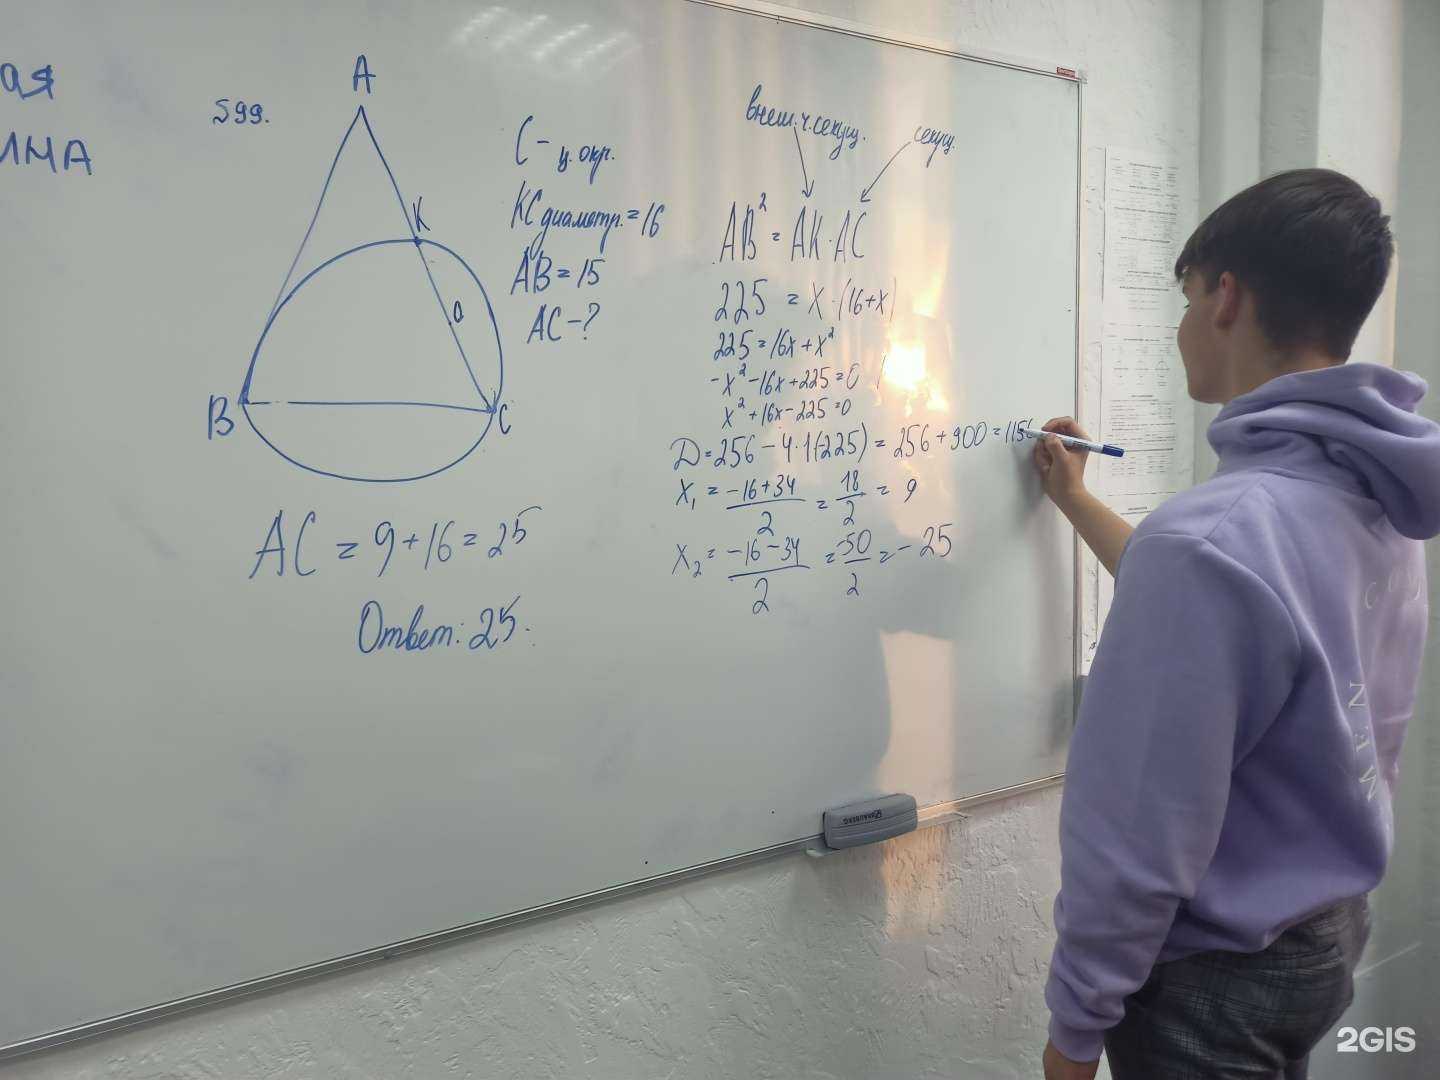 ая
ИНА
599.
A
K
O
B
C
C - ц. окр.
KC диаметр. = 16
AB = 15
AC - ?
AC = 9 + 16 = 25
Ответ: 25.
внеш. ч. секущ.
секущ.
AB² = AK · AC
225 = x · (16+x)
225 = 16x + x²
-x² - 16x + 225 = 0
x² + 16x - 225 = 0
D = 256 - 4 · 1(-225) = 256 + 900 = 1156
x₁ = (-16+34)/2 = 18/2 = 9
x₂ = (-16-34)/2 = -50/2 = -25
BRAUBERG
MEN
2GIS